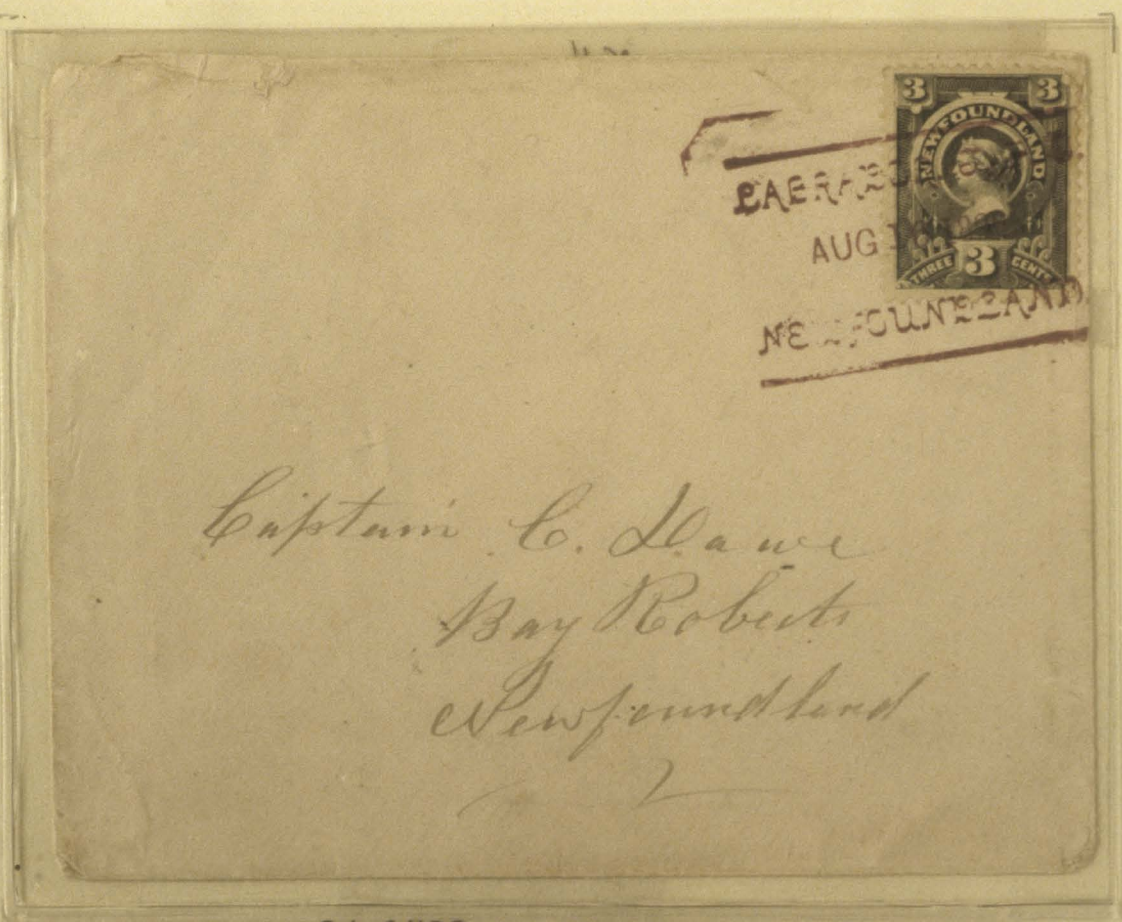 3 3
NEWFOUNDLAND
THREE 3 CENTS
LABRADOR
AUG
NEWFOUNDLAND
Captain C. Dawe
Bay Roberts
Newfoundland